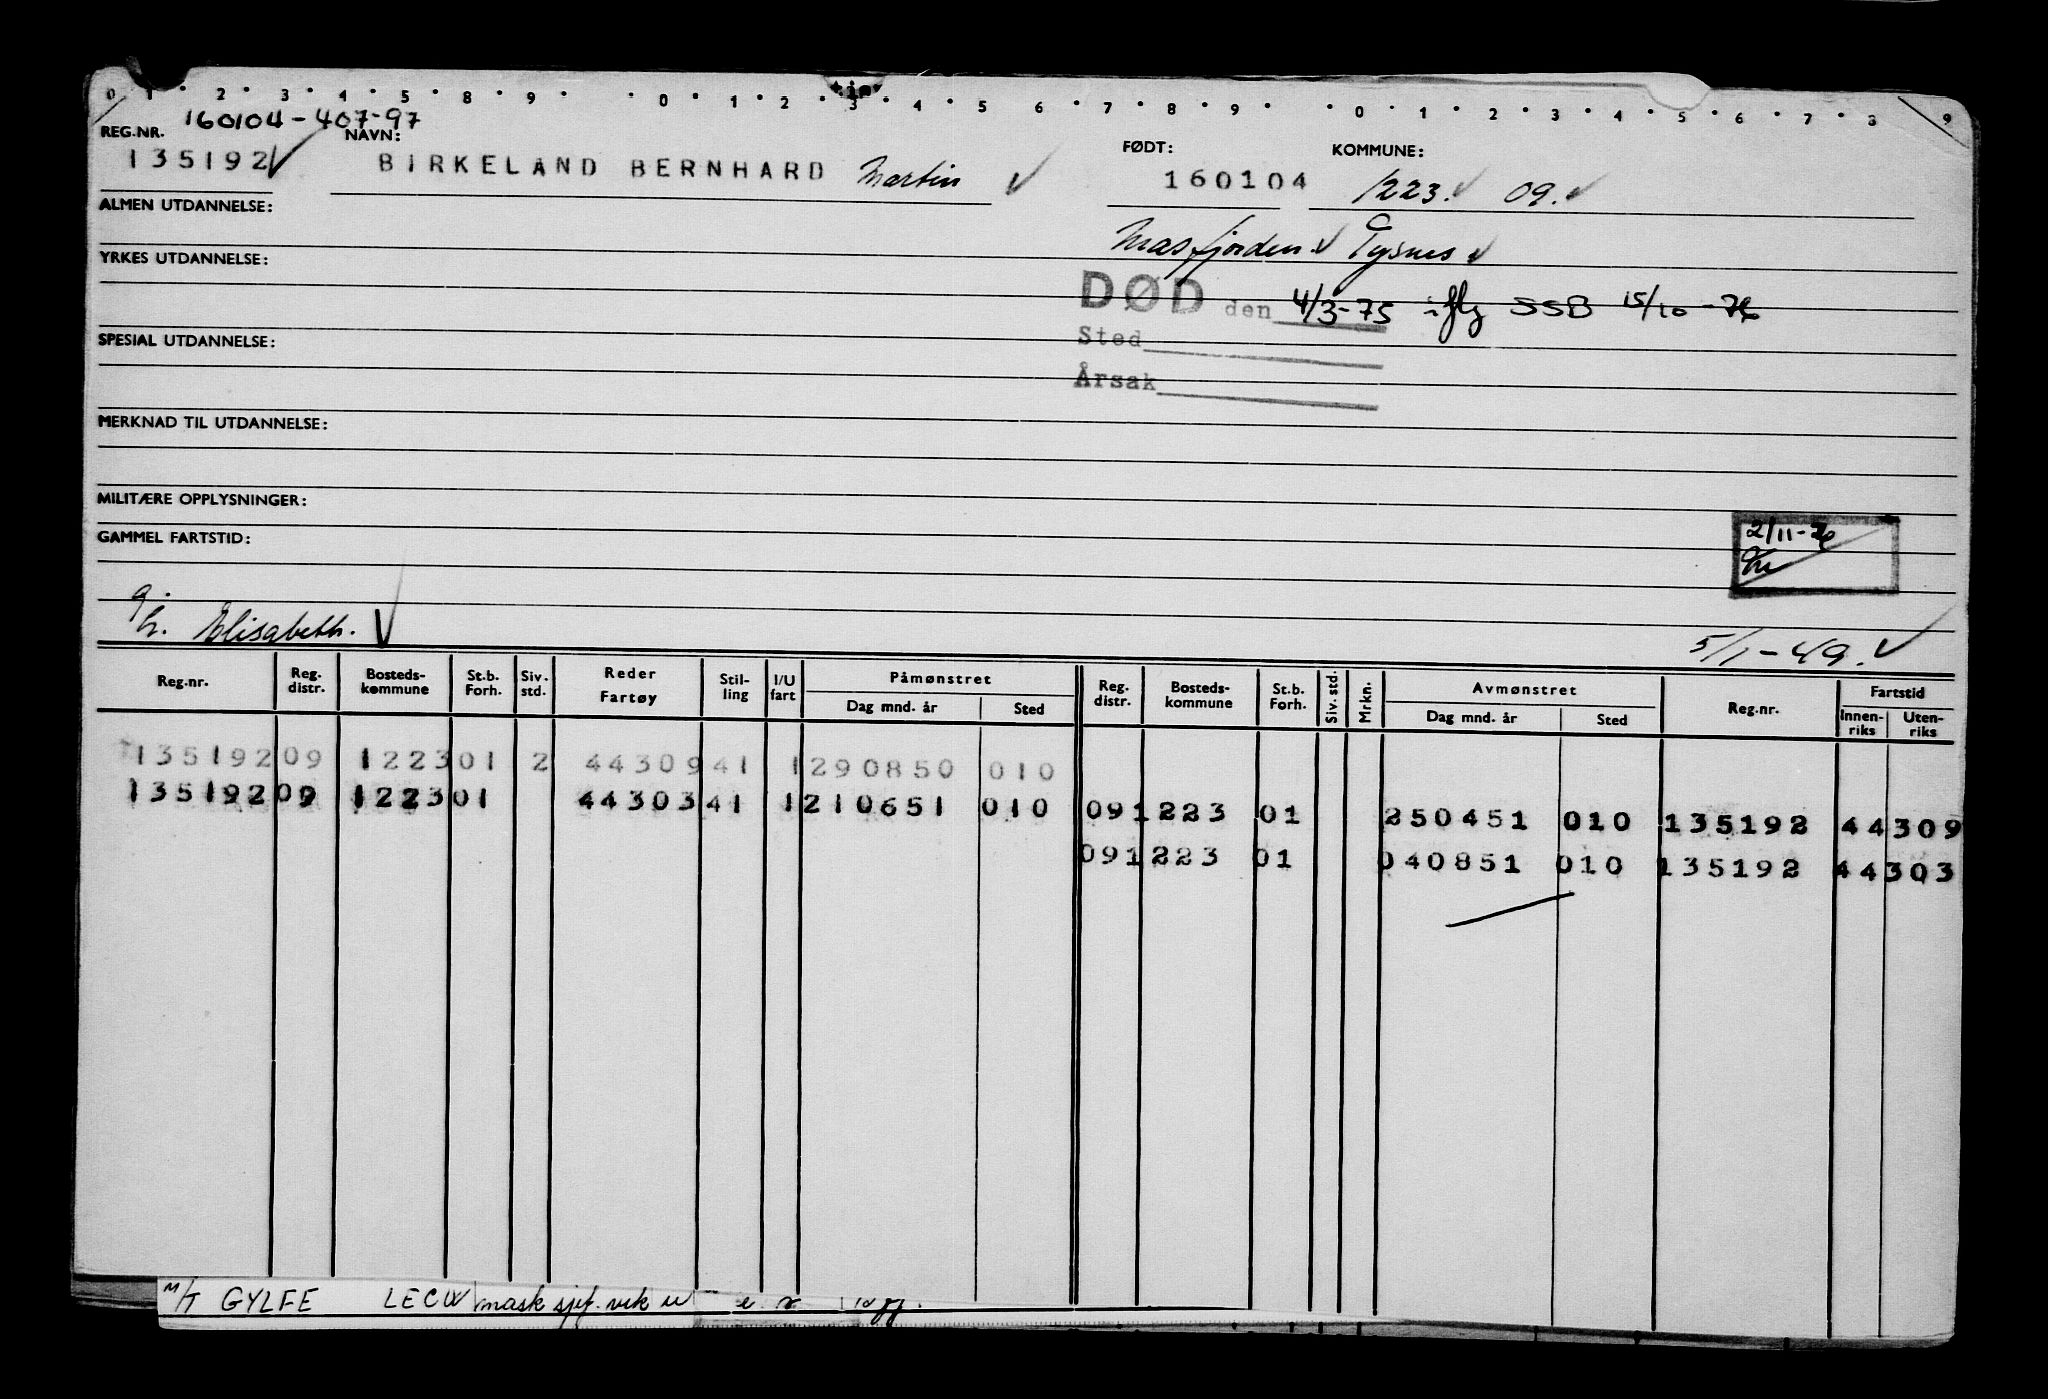 0 1 2 3 4 5 8 9 0 1 2 3 4 5 6 7 8 9 0 1 2 3 4 5 6 7 8 9
160104-407-97
REG.NR. NAVN: FØDT: KOMMUNE:
135192 BIRKELAND BERNHARD Martin 160104 1223. 09.
ALMEN UTDANNELSE:
Masfjorden. Tysnes
YRKES UTDANNELSE:
DØD den 4/3-75 iflg SSB 15/10-76
Sted
SPESIAL UTDANNELSE:
Årsak
MERKNAD TIL UTDANNELSE:
MILITÆRE OPPLYSNINGER:
2/11-76
GAMMEL FARTSTID:
g.
h. Elisabeth. 5/1-49.
Reg.nr. Reg. distr. Bosteds-kommune St.b. Forh. Siv. std. Reder Fartøy Stil-ling I/U fart Påmønstret Dag mnd. år Sted Reg. distr. Bosteds-kommune St.b. Forh. Siv. std. Mrkn. Avmønstret Dag mnd. år Sted Reg.nr. Fartstid Innen-riks Uten-riks
135192 09 1223 01 2 44309 41 1 290850 010
135192 09 1223 01 44303 41 1 210651 010 09 1223 01 250451 010 135192 44309
09 1223 01 040851 010 135192 44303
M/T GYLFE LECW mask sjef.